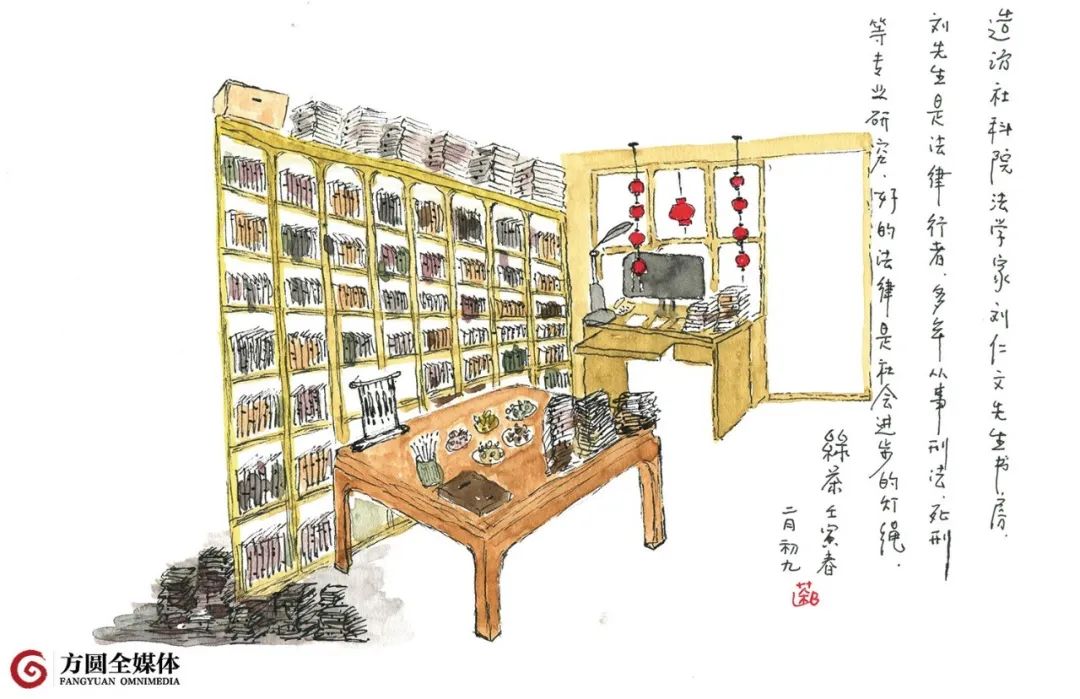 造访社科院法学家刘仁文先生书房.
刘先生是法律行者.多年从事刑法.死刑
等专业研究.好的法律是社会进步的灯绳.
绿茶壬寅春
二月初九
方圆全媒体
FANGYUAN OMNIMEDIA